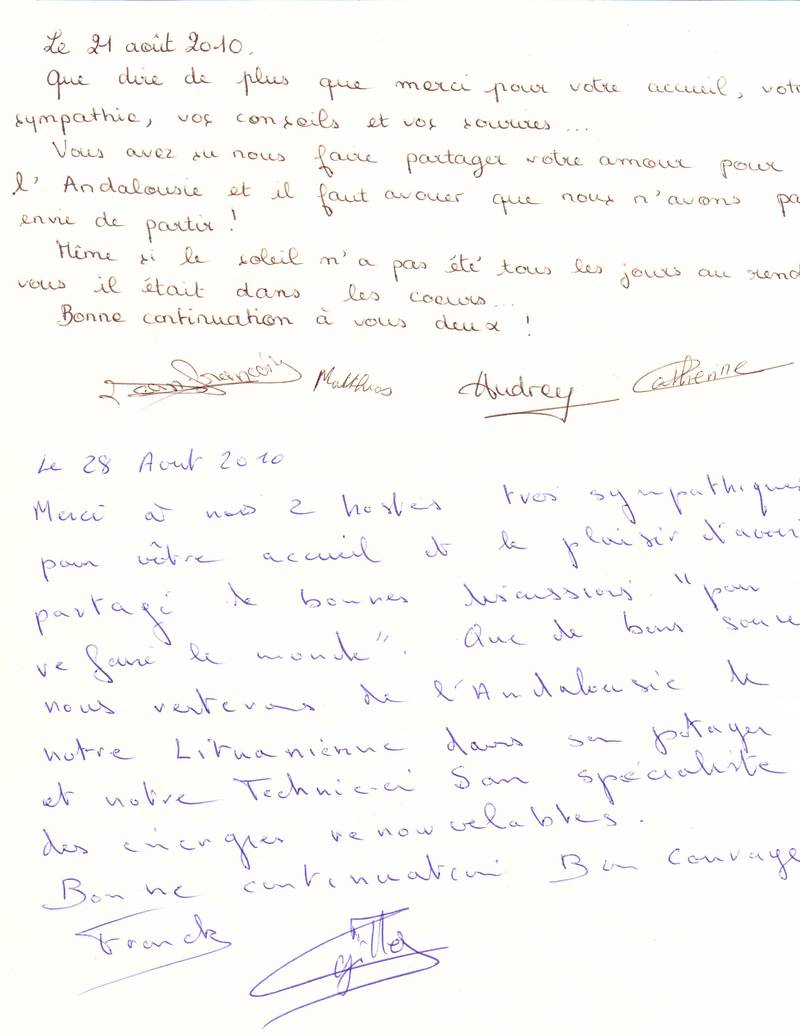 Le 21 août 2010.
Que dire de plus que merci pour votre accueil, votr
sympathie, vos conseils et vos sourires...
Vous avez su nous faire partager votre amour pour
l'Andalousie et il faut avouer que nous n'avons pa
envie de partir !
Même si le soleil n'a pas été tous les jours au rend
vous il était dans les coeurs...
Bonne continuation à vous deux !
Jean François Matthias Audrey Catherine
Le 28 Aout 2010
Merci à nos 2 hostes tres sympathiques
pour vôtre accueil et le plaisir d'avoir
partagé de bonnes discussions "pour
refaire le monde". Que de bons souve
nous resterons de l'Andalousie de
notre Lituanienne dans son potager
et notre Technic-ci Son spécialiste
des énergies renouvelables.
Bonne continuation Bon courage
Franck